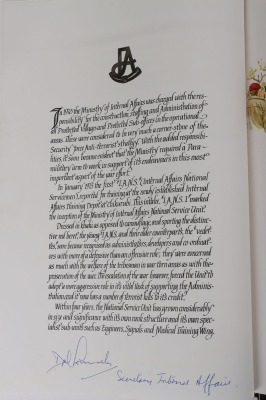 IA
In 1973 the Ministry of Internal Affairs was charged with the res-
ponsibility for the construction, staffing and Administration of
all Protected Villages and Protected Sub-offices in the operational
areas. These were considered to be very much a corner-stone of the
Security Forces Anti-terrorist strategy. With the added responsibi-
lities, it soon became evident that the Ministry required a Para-
military arm to work in support of its endeavours in this most
important aspect of the war effort.
In January 1975 the first "I.A.N.S." (Internal Affairs National
Servicemen) reported for training at the newly established Internal
Affairs Training Depot at Chikurubi. This intake, "I.A.N.S. 1" marked
the inception of the Ministry of Internal Affairs National Service Unit.
Dressed in khaki as opposed to camouflage and sporting the distinc-
tive red beret, the young "I.A.N.S." and their older counterparts, the "vedet-
tes", soon became recognised as administrators, developers and co-ordinat-
ors with more of a defensive than an offensive role; they were concerned
as much with the welfare of the tribesmen in war torn areas as with the
prosecution of the war. The escalation of the war however, forced the Unit to
adopt a more aggressive role in its vital task of supporting the Adminis-
tration and it now has a number of terrorist kills to its credit.
Within four years, the National Service Unit has grown considerably
in size and significance with its own rank structure and its own spec-
ialist sub-units such as Engineers, Signals and Medical Training Wing.
Secretary Internal Affairs